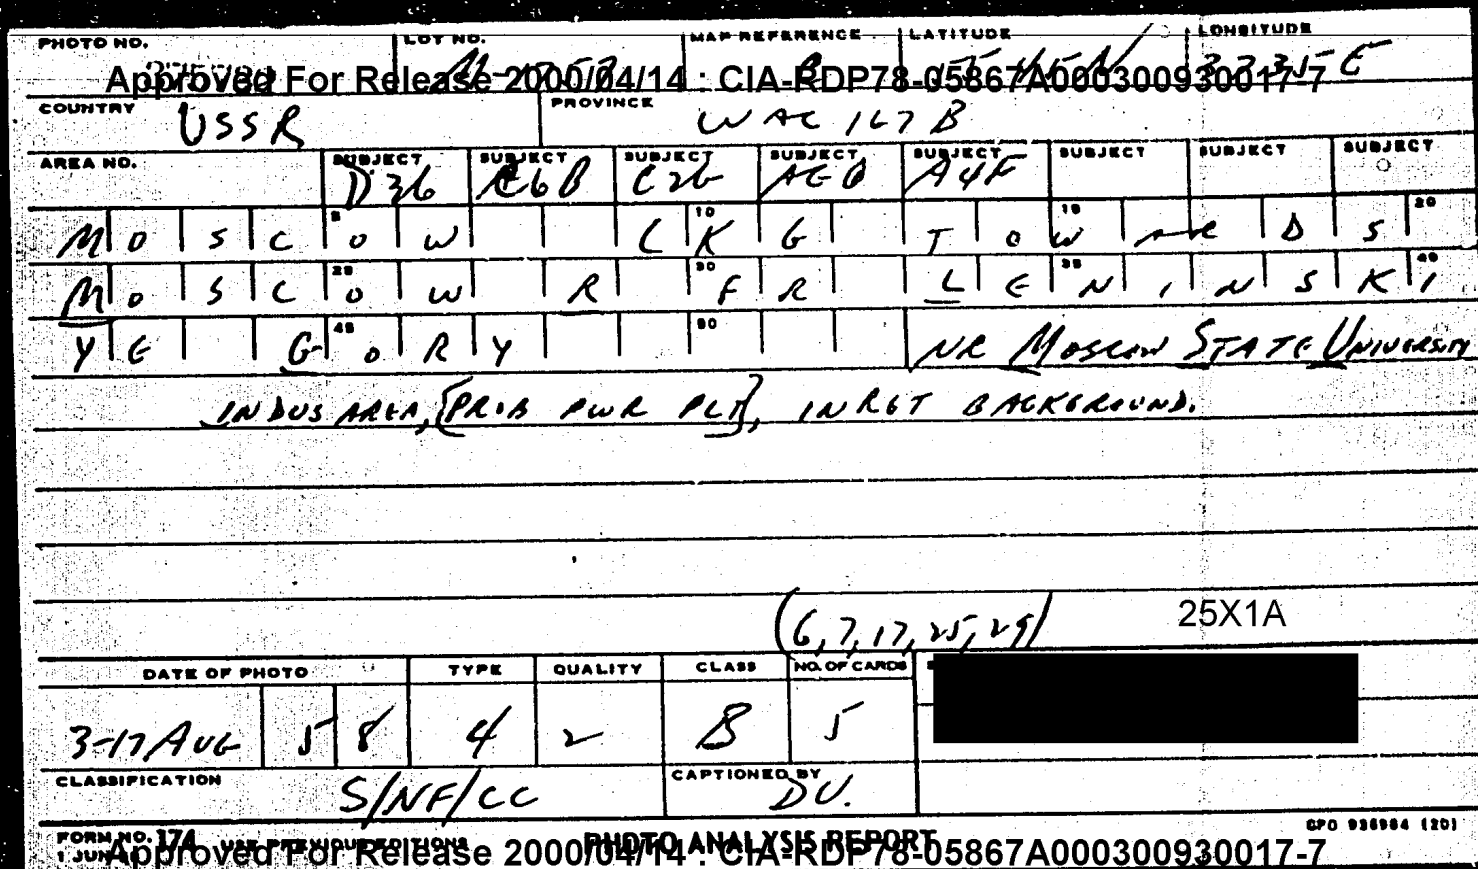 PHOTO NO. LOT NO. MAP REFERENCE LATITUDE LONGITUDE
Approved For Release 2000/04/14 : CIA-RDP78-05867A000300930017-7
COUNTRY USSR PROVINCE WAC 167 B
AREA NO. SUBJECT D36 SUBJECT C6B SUBJECT C2G SUBJECT AGB SUBJECT A4F SUBJECT SUBJECT SUBJECT
5 10 15 20
MOSCOW LKG TOWARDS
25 30 35 40
MOSCOW R FR LENINSKI
45 50
YE GORY NR MOSCOW STATE UNIVERSITY
INDUS AREA, [PROB PWR PLT], IN RGT BACKGROUND.
(6, 7, 17, 25, 29) 25X1A
DATE OF PHOTO TYPE QUALITY CLASS NO. OF CARDS
3-17 AUG 58 4 2 B 5
CLASSIFICATION S/NF/CC CAPTIONED BY DV.
GPO 936984 (20)
FORM NO. 174 USE PREVIOUS EDITIONS PHOTO ANALYSIS REPORT
1 JUN
Approved For Release 2000/04/14 : CIA-RDP78-05867A000300930017-7